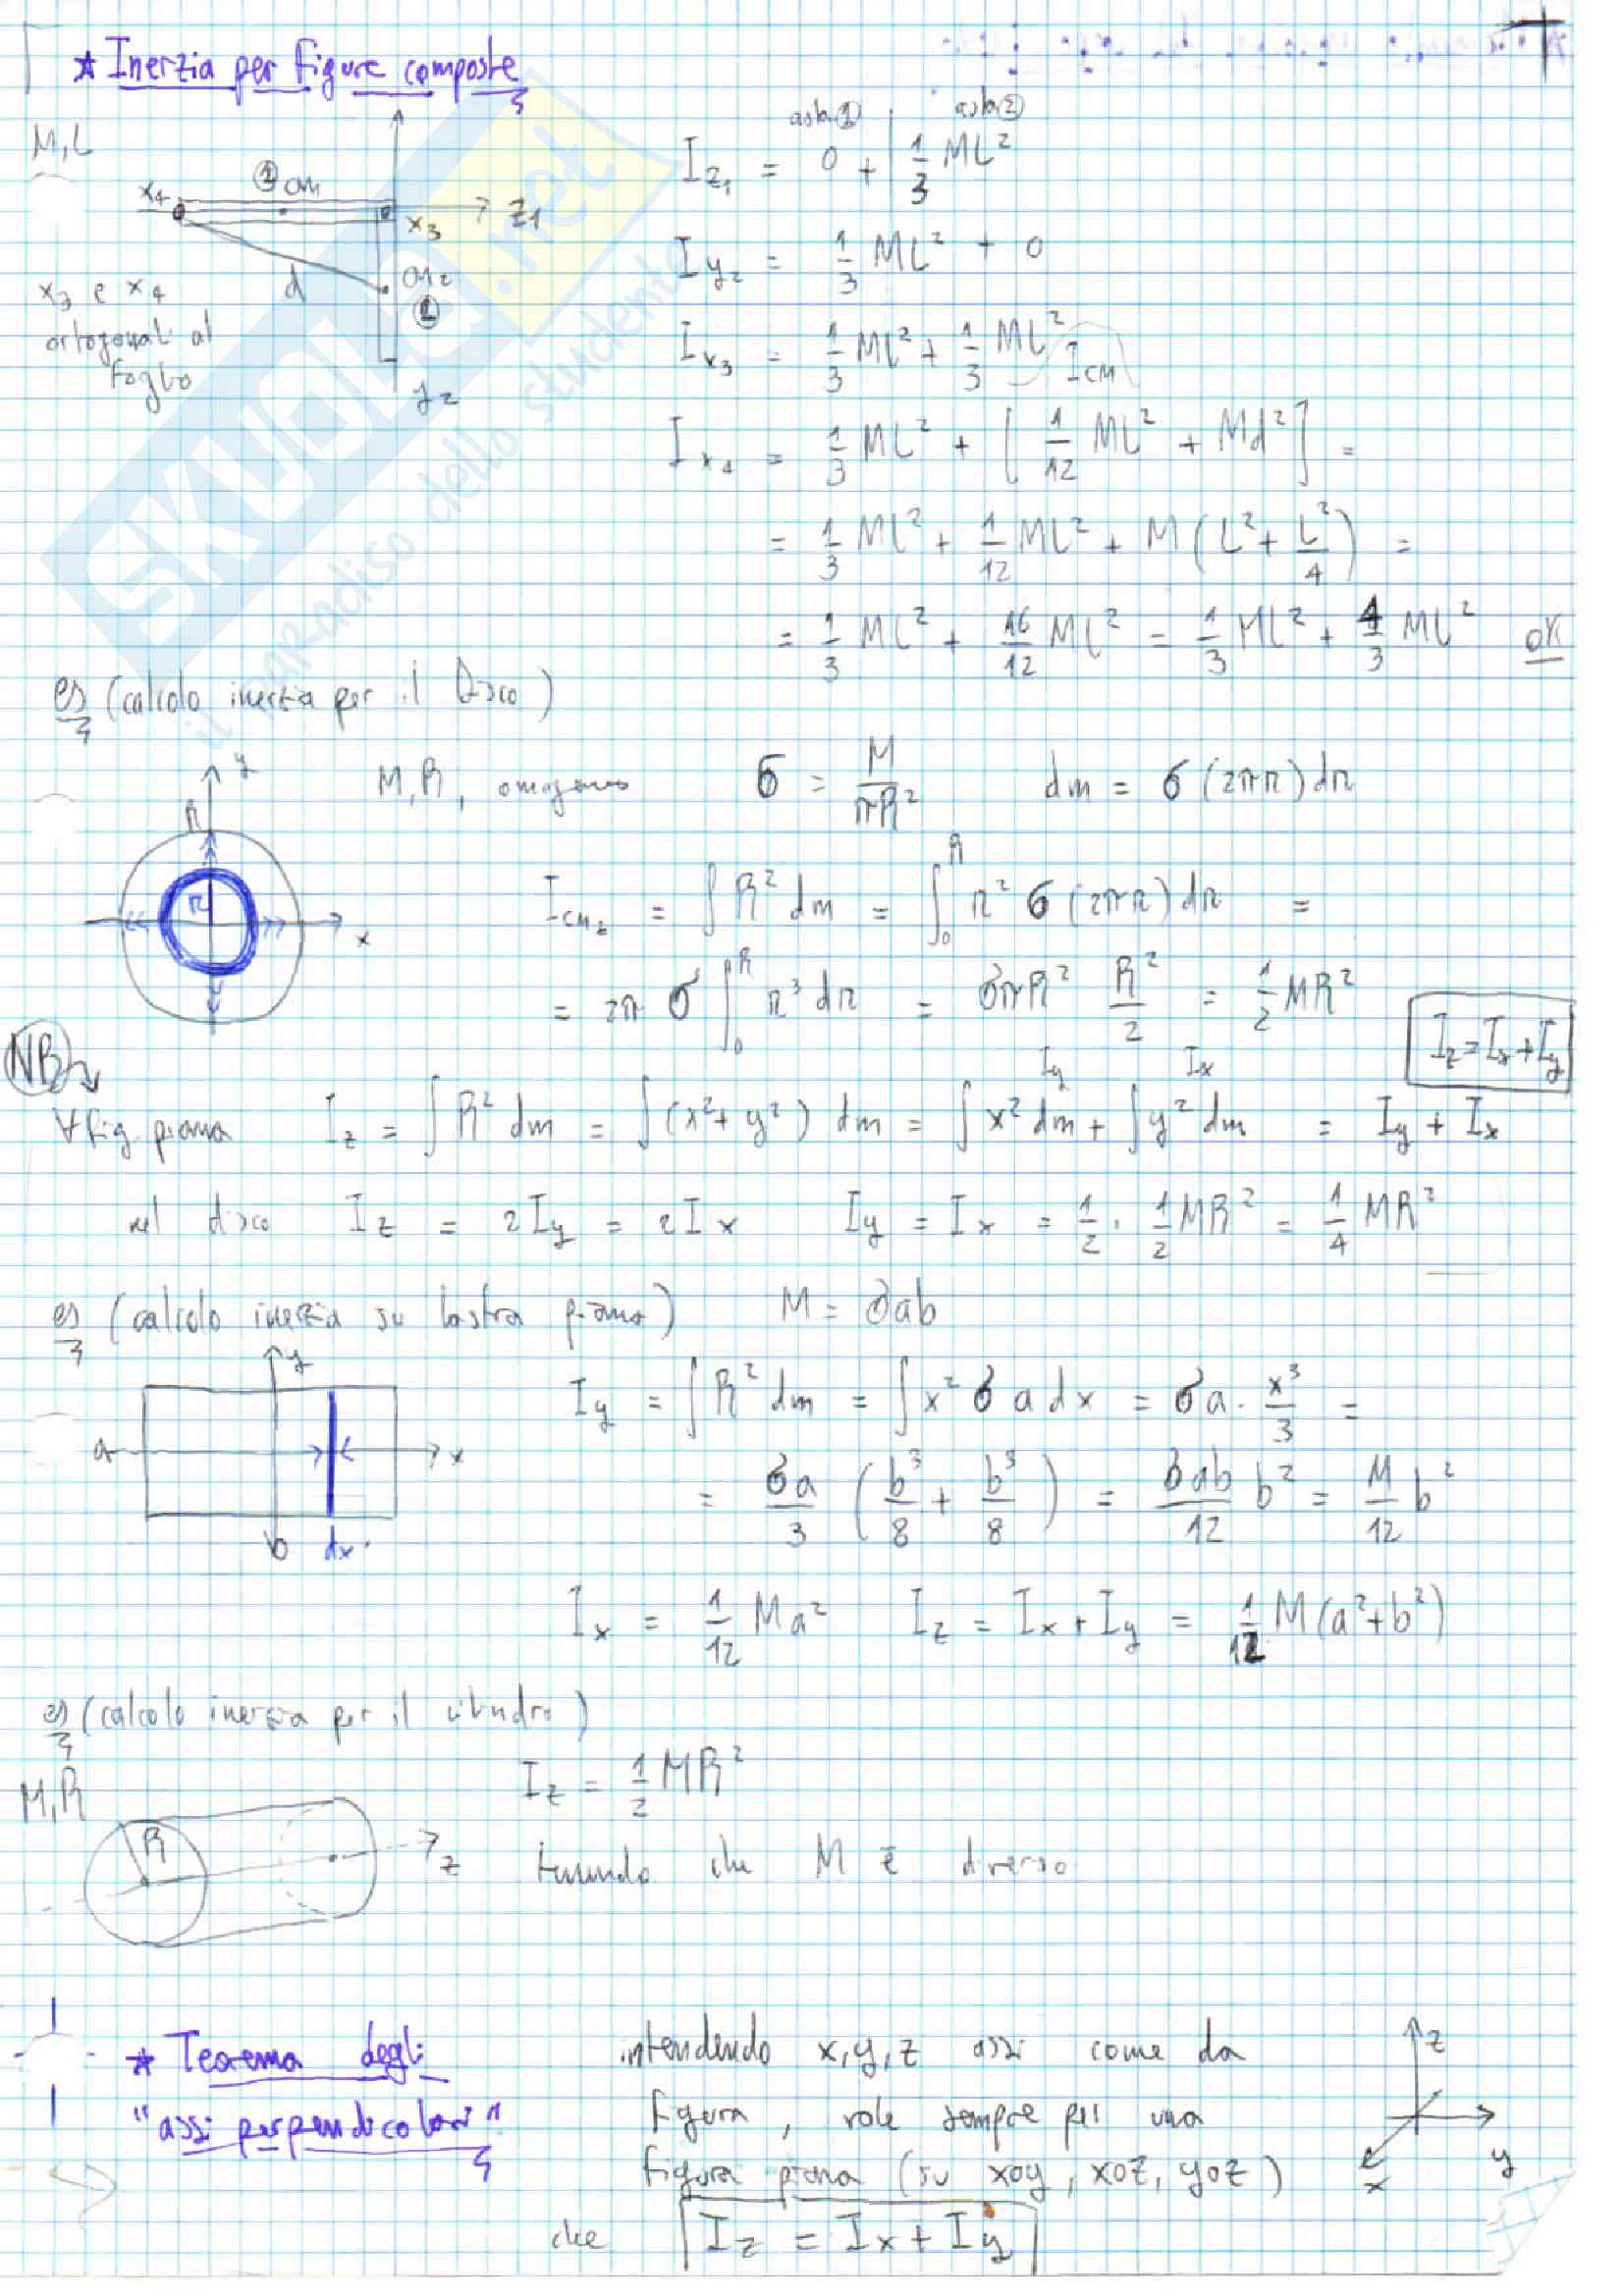 * Inerzia per figure composte
M, L
x₄ ① cm x₃ z₁
d cm₂ ② y₂
x₃ e x₄
ortogonali al
foglio
asta① asta②
I_z₁ = 0 + 1/3 ML²
I_y₂ = 1/3 ML² + 0
I_x₃ = 1/3 ML² + 1/3 ML²
I_CM
I_x₄ = 1/3 ML² + [1/12 ML² + Md²] =
= 1/3 ML² + 1/12 ML² + M (L² + L²/4) =
= 1/3 ML² + 16/12 ML² = 1/3 ML² + 4/3 ML² OK
es (calcolo inerzia per il Disco)
y R r x
M, R, omogeneo σ = M/πR² dm = σ (2πr) dr
I_CM_z = ∫ R² dm = ∫₀ᴿ r² σ (2πr) dr =
= 2π σ ∫₀ᴿ r³ dr = σπR² R²/2 = 1/2 MR²
I_z = I_x + I_y
NB
I_y I_x
∀ fig. piana I_z = ∫ R² dm = ∫ (x² + y²) dm = ∫ x² dm + ∫ y² dm = I_y + I_x
nel disco I_z = 2I_y = 2I_x I_y = I_x = 1/2 · 1/2 MR² = 1/4 MR²
es (calcolo inerzia su lastra piana) M = σab
y a x b dx
I_y = ∫ R² dm = ∫ x² σ a dx = σa · x³/3 =
= σa/3 (b³/8 + b³/8) = σab/12 b² = M/12 b²
I_x = 1/12 Ma² I_z = I_x + I_y = 1/12 M (a² + b²)
es (calcolo inerzia per il cilindro)
M, R
R z
I_z = 1/2 MR²
che M è diverso
* Teorema degli
"assi perpendicolari"
intendendo x, y, z assi come da
figura, vale sempre per una
figura piana (su xoy, xoz, yoz)
che I_z = I_x + I_y
z y x
SKUOLA.net
il paradiso dello studente